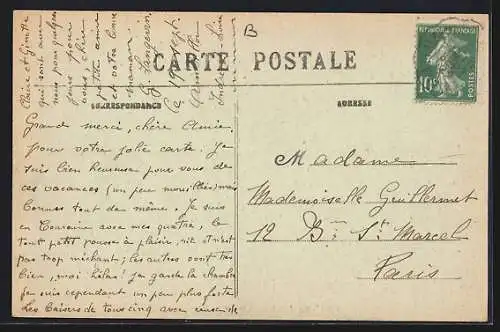 B
CARTE POSTALE
CORRESPONDANCE
ADRESSE
RÉPUBLIQUE FRANÇAISE
10c
POSTES
Grand merci, chère Amie,
pour votre jolie carte. Je
suis bien heureuse pour vous de
ces vacances (un peu mouillées) mais
bonnes tout de même. Je suis
en Touraine avec mes quatre, le
tout petit pousse à plaisir, rit et n'est
pas trop méchant; les autres vont très
bien, moi hélas! j'ai gardé la chambre
je suis cependant un peu plus forte
Les baisers de tous cinq avec
petite amie
et votre bonne
maman.
Le 19 sept.
Indre et Loire
Madame
Mademoiselle Guillermet
12 Bd St Marcel
Paris